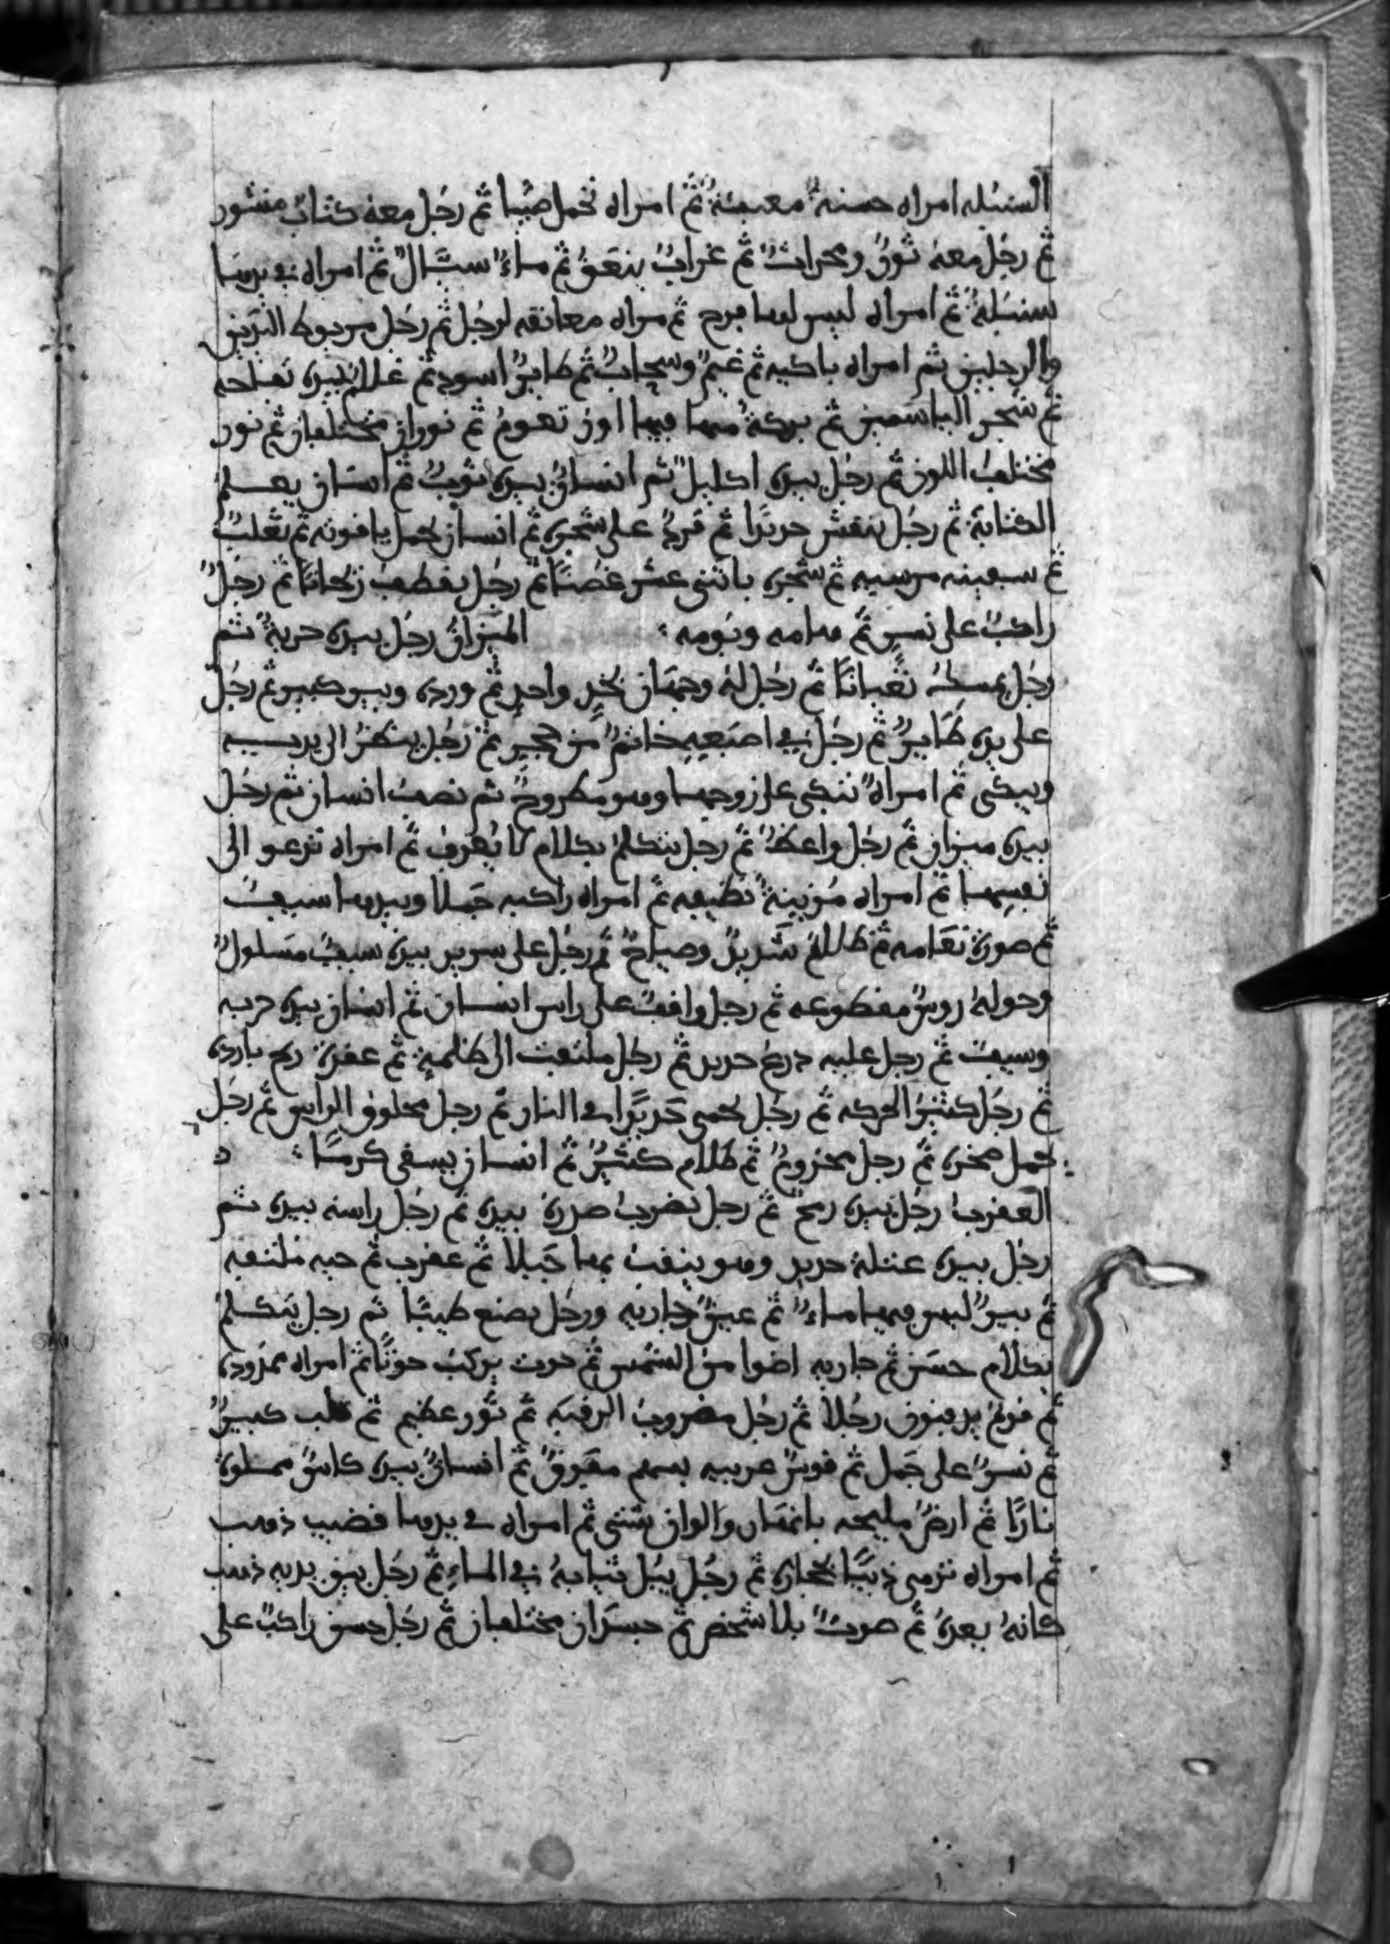 السنبله امراه حسنة معينة ثم امراه تحمل صبيا ثم رجل معه كتاب منشور
ثم رجل معه ثور ومحراث ثم غراب ينعق ثم ماء سيال ثم امراه في يدها
سنبلة ثم امراه ليس لها فرح ثم مراه معانقه لرجل ثم رجل مربوط اليدين
والرجلين ثم امراه باكيه ثم غيم وسحاب ثم طاير اسود ثم غلام بيده تفاحه
ثم شجر الياسمين ثم بركة فيها اوز تعوم ثم نوران مختلفان ثم نور
مختلف اللون ثم رجل بيده اكليل ثم انسان بيده ثوب ثم انسان يعلم
الكتابة ثم رجل ينقش حريرا ثم قرد على شجرة ثم انسان يحمل ياقوته ثم ثعلب
ثم سفينه مرسيه ثم شجره باثنى عشر غصنا ثم رجل يقطف ريحانا ثم رجل
راكب على نسر ثم هامه وبومه الميزان رجل بيده حربة ثم
رجل يمسك ثعبانا ثم رجل له وجهان بخد واحد ثم ورده وبير كبير ثم رجل
على يده طاير ثم رجل في اصبعه خاتم من حجر ثم رجل ينظر الى يديه
ويبكى ثم امراة تبكى على زوجها وهو مطروح ثم نصف انسان ثم رجل
بيده ميزان ثم رجل واعظ ثم رجل يتكلم بكلام لا يعرف ثم امراه تدعو الى
نفسها ثم امراه مزينة نظيفه ثم امراه راكبه جملا وبيدها سيف
ثم صورة نعامه ثم ظلام شديد وصياح ثم رجل على سرير بيده سيف مسلول
وحوله روس مقطوعه ثم رجل واقف على راس انسان ثم انسان بيده حربه
وسيف ثم رجل عليه درع حديد ثم رجل ملتفت الى ظلمة ثم عقرة ريح بارده
ثم رجل كثير الحركه ثم رجل يحمى حديدا في النار ثم رجل محلوق الراس ثم رجل
يحمل صخره ثم رجل مخزوم ثم ظلام كثير ثم انسان يسقى كرما
العقرب رجل بيده رمح ثم رجل يضرب صدره بيده ثم رجل راسه بيده ثم
رجل بيده عتلة حديد وهو ينقب بها جبلا ثم عقرب ثم حيه ملتفه
ثم بير ليس فيها ماء ثم عين جاريه ورجل يصنع طيبا ثم رجل يتكلم
بكلام حسن ثم جاريه اضوا من الشمس ثم حوت يركب حوتا ثم امراه ممزوده
ثم قوم يدفنون رجلا ثم رجل مضروب الرقبه ثم ثور عظيم ثم كلب كبير
ثم نسر على جمل ثم قوس عربيه بسهم مفوق ثم انسان بيده كاس مملوة
نارا ثم ارض مليحه باتمار والوان شتى ثم امراه في يدها قضيب ذهب
ثم امراه ترمى ذيبا بحجارة ثم رجل يبل ثيابه في الماء ثم رجل بين يديه ذهب
كانه يعده ثم صوت بلا شخص ثم جسران مختلفان ثم رجل حسن راكب على